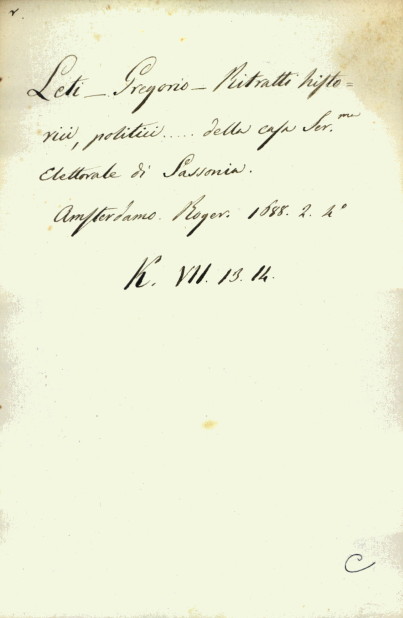 v.
Leti _ Gregorio _ Ritratti histo=
rici, politici ..... della casa Ser.me
Elettorale di Sassonia.
Amsterdamo. Roger. 1688. 2. 4°
K. VII. 13. 14.
C